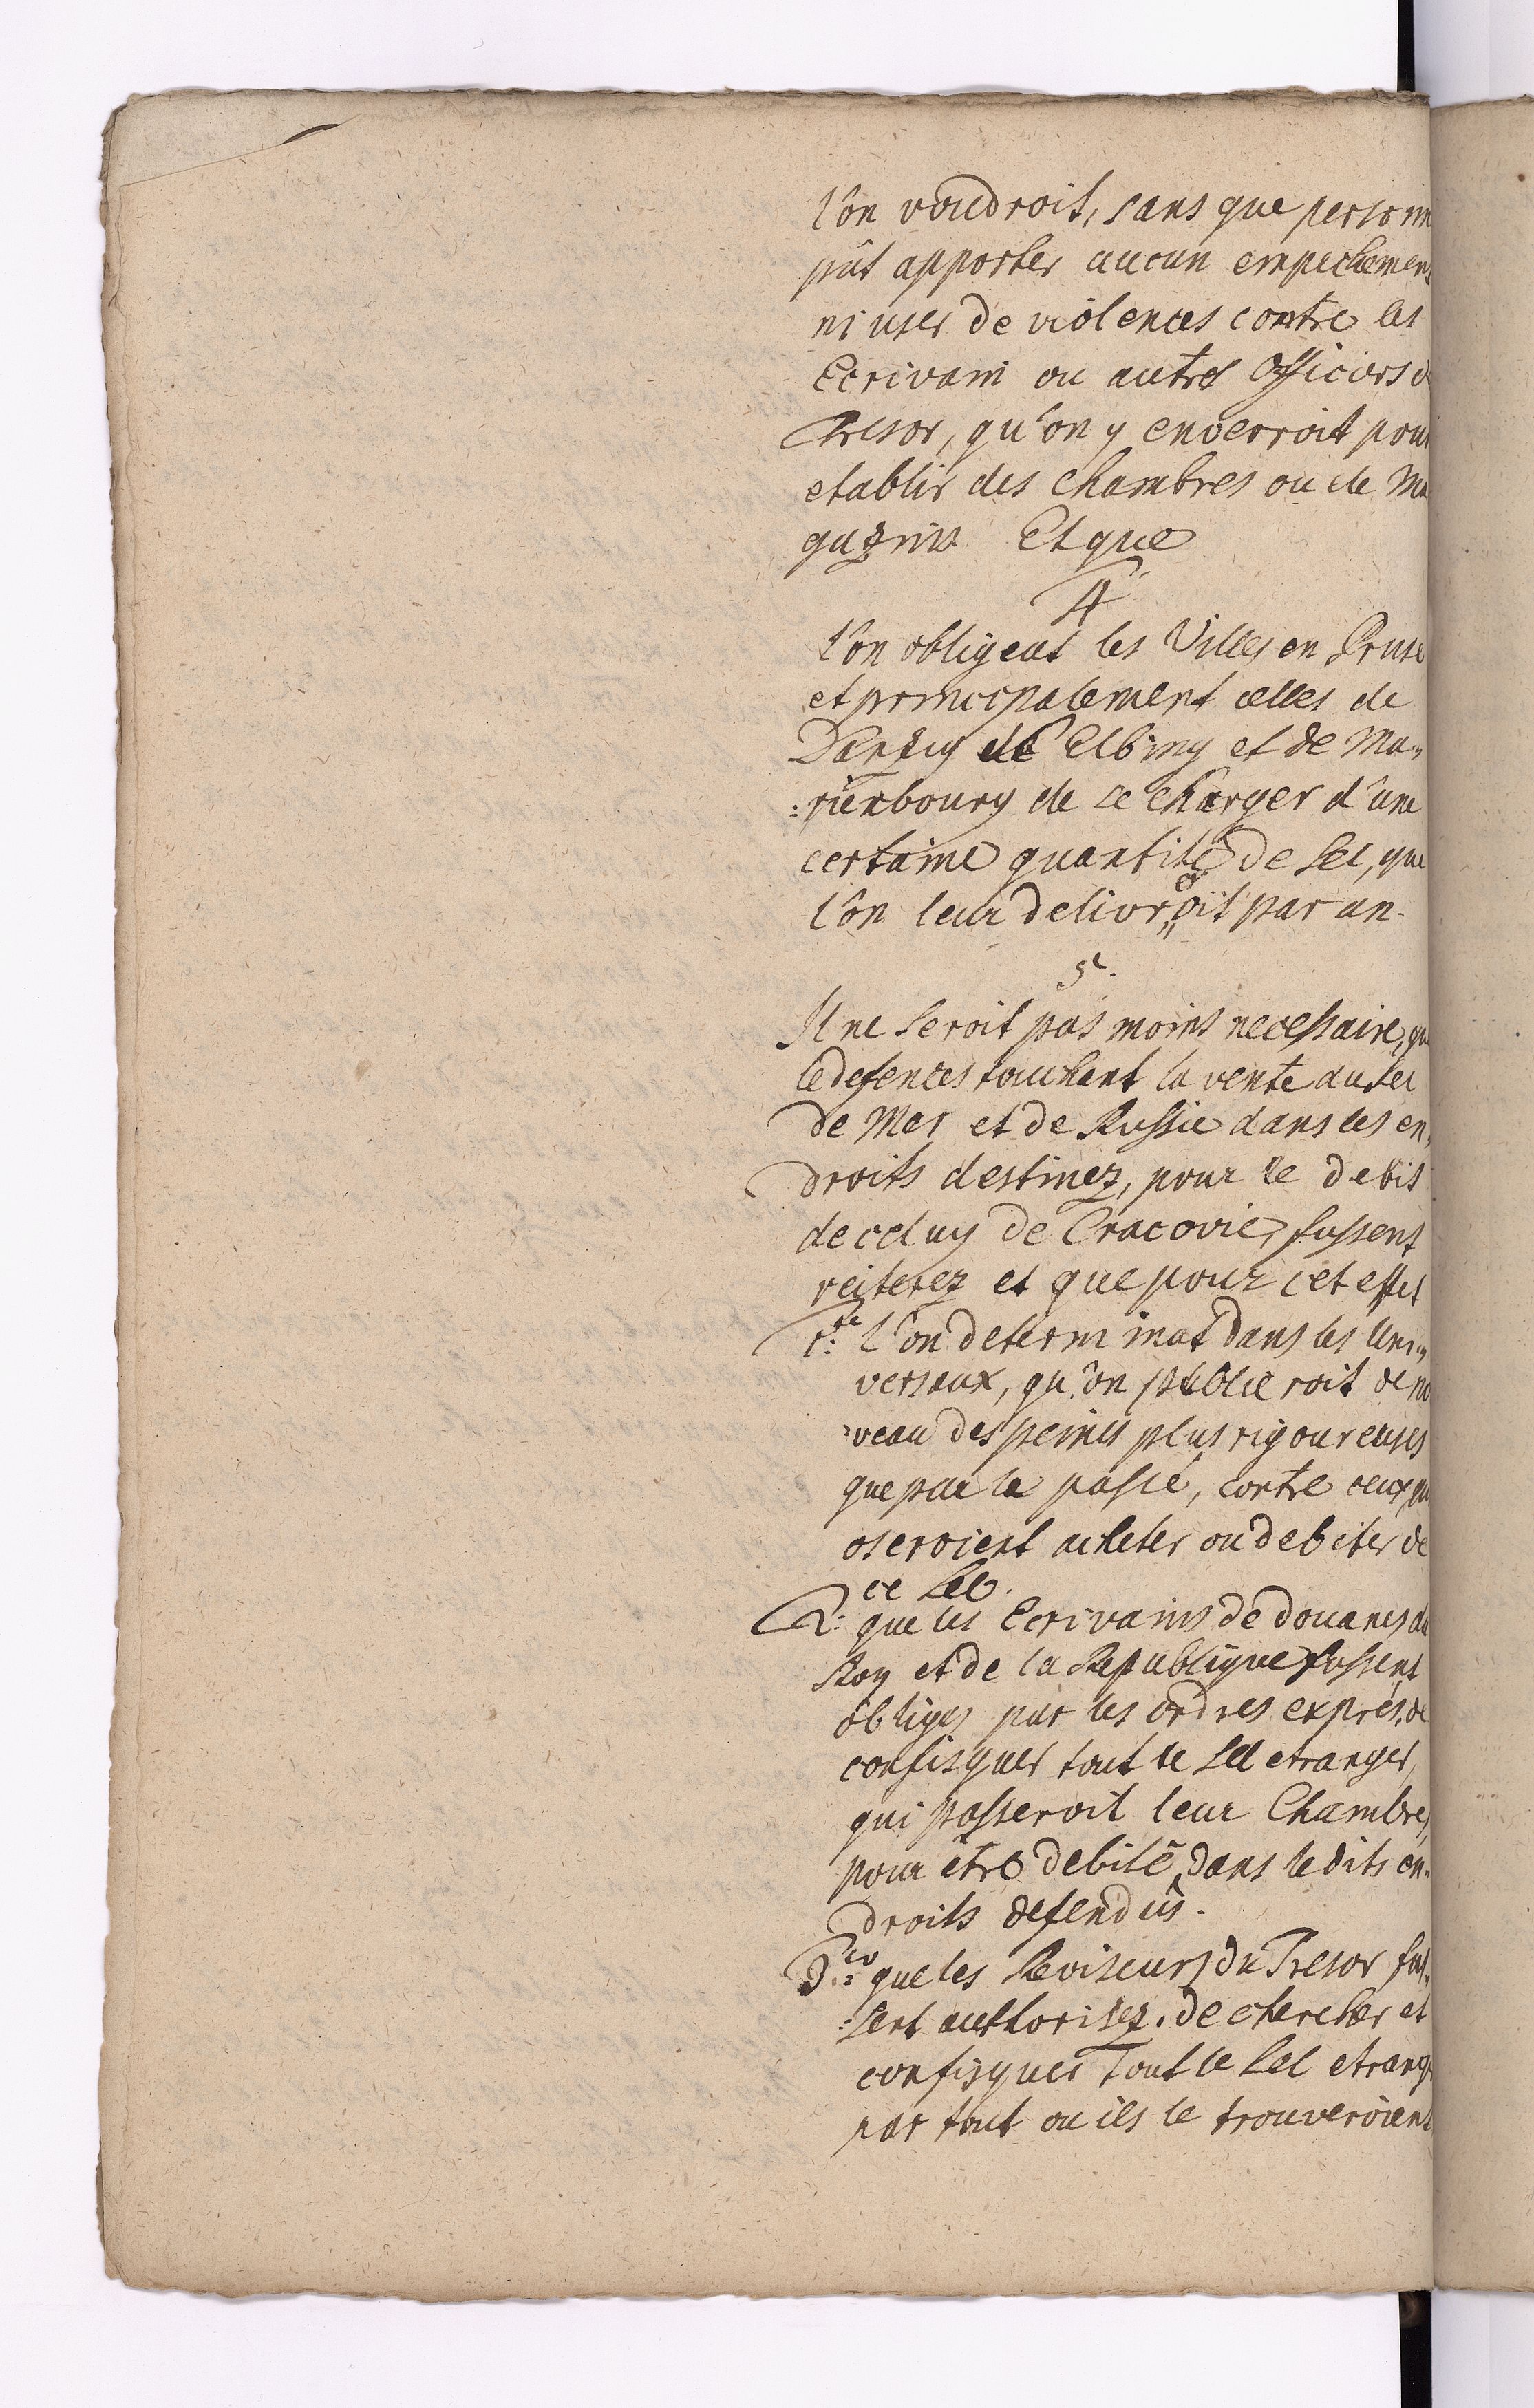 l'on voudroit, sans que personn
pût apporter aucun empechement
ni user de violences contre les
Ecrivain ou autres Officiers d
Tresor, qu'on y enverroit pour
etablir des Chambres ou de Ma
gazins Et que
4
l'on obligeat les Villes en Pruse
et principalement celles de
Dantzig de Elbing et de Ma„
:rienbourg de ce charger d'une
certaine quantité de Sel, que
l'on leur delivreroit par an.
5e.
Il ne seroit pas moins necessaire, que
le defences touchant la vente du Sel
de Mer et de Russie dans les en,
droits destinez, pour le debit
de celuy de Cracovie, fussent
reiterez et que pour cet effet
1:re l'on determinat dans les Uni„
versaux, qu'on publieroit de no
:veau des peines plus rigoureuses
que par le passé, contre ceux qu
oseroient acheter ou debiter de
ce Sel.
2: que les Ecrivains de douanes du
Roy et de la Republique fussent
obliges par les ordres exprés, de
confisquer tout le Sel etranger,
qui passeroit leur Chambres,
pour être debité, dans le dits en„
droits defendûs.
3:io que les Reviseurs du Tresor fus„
:sent authorisez. de chercher et
confisquer tout le Sel etrang
par tout ou ils le trouveroient